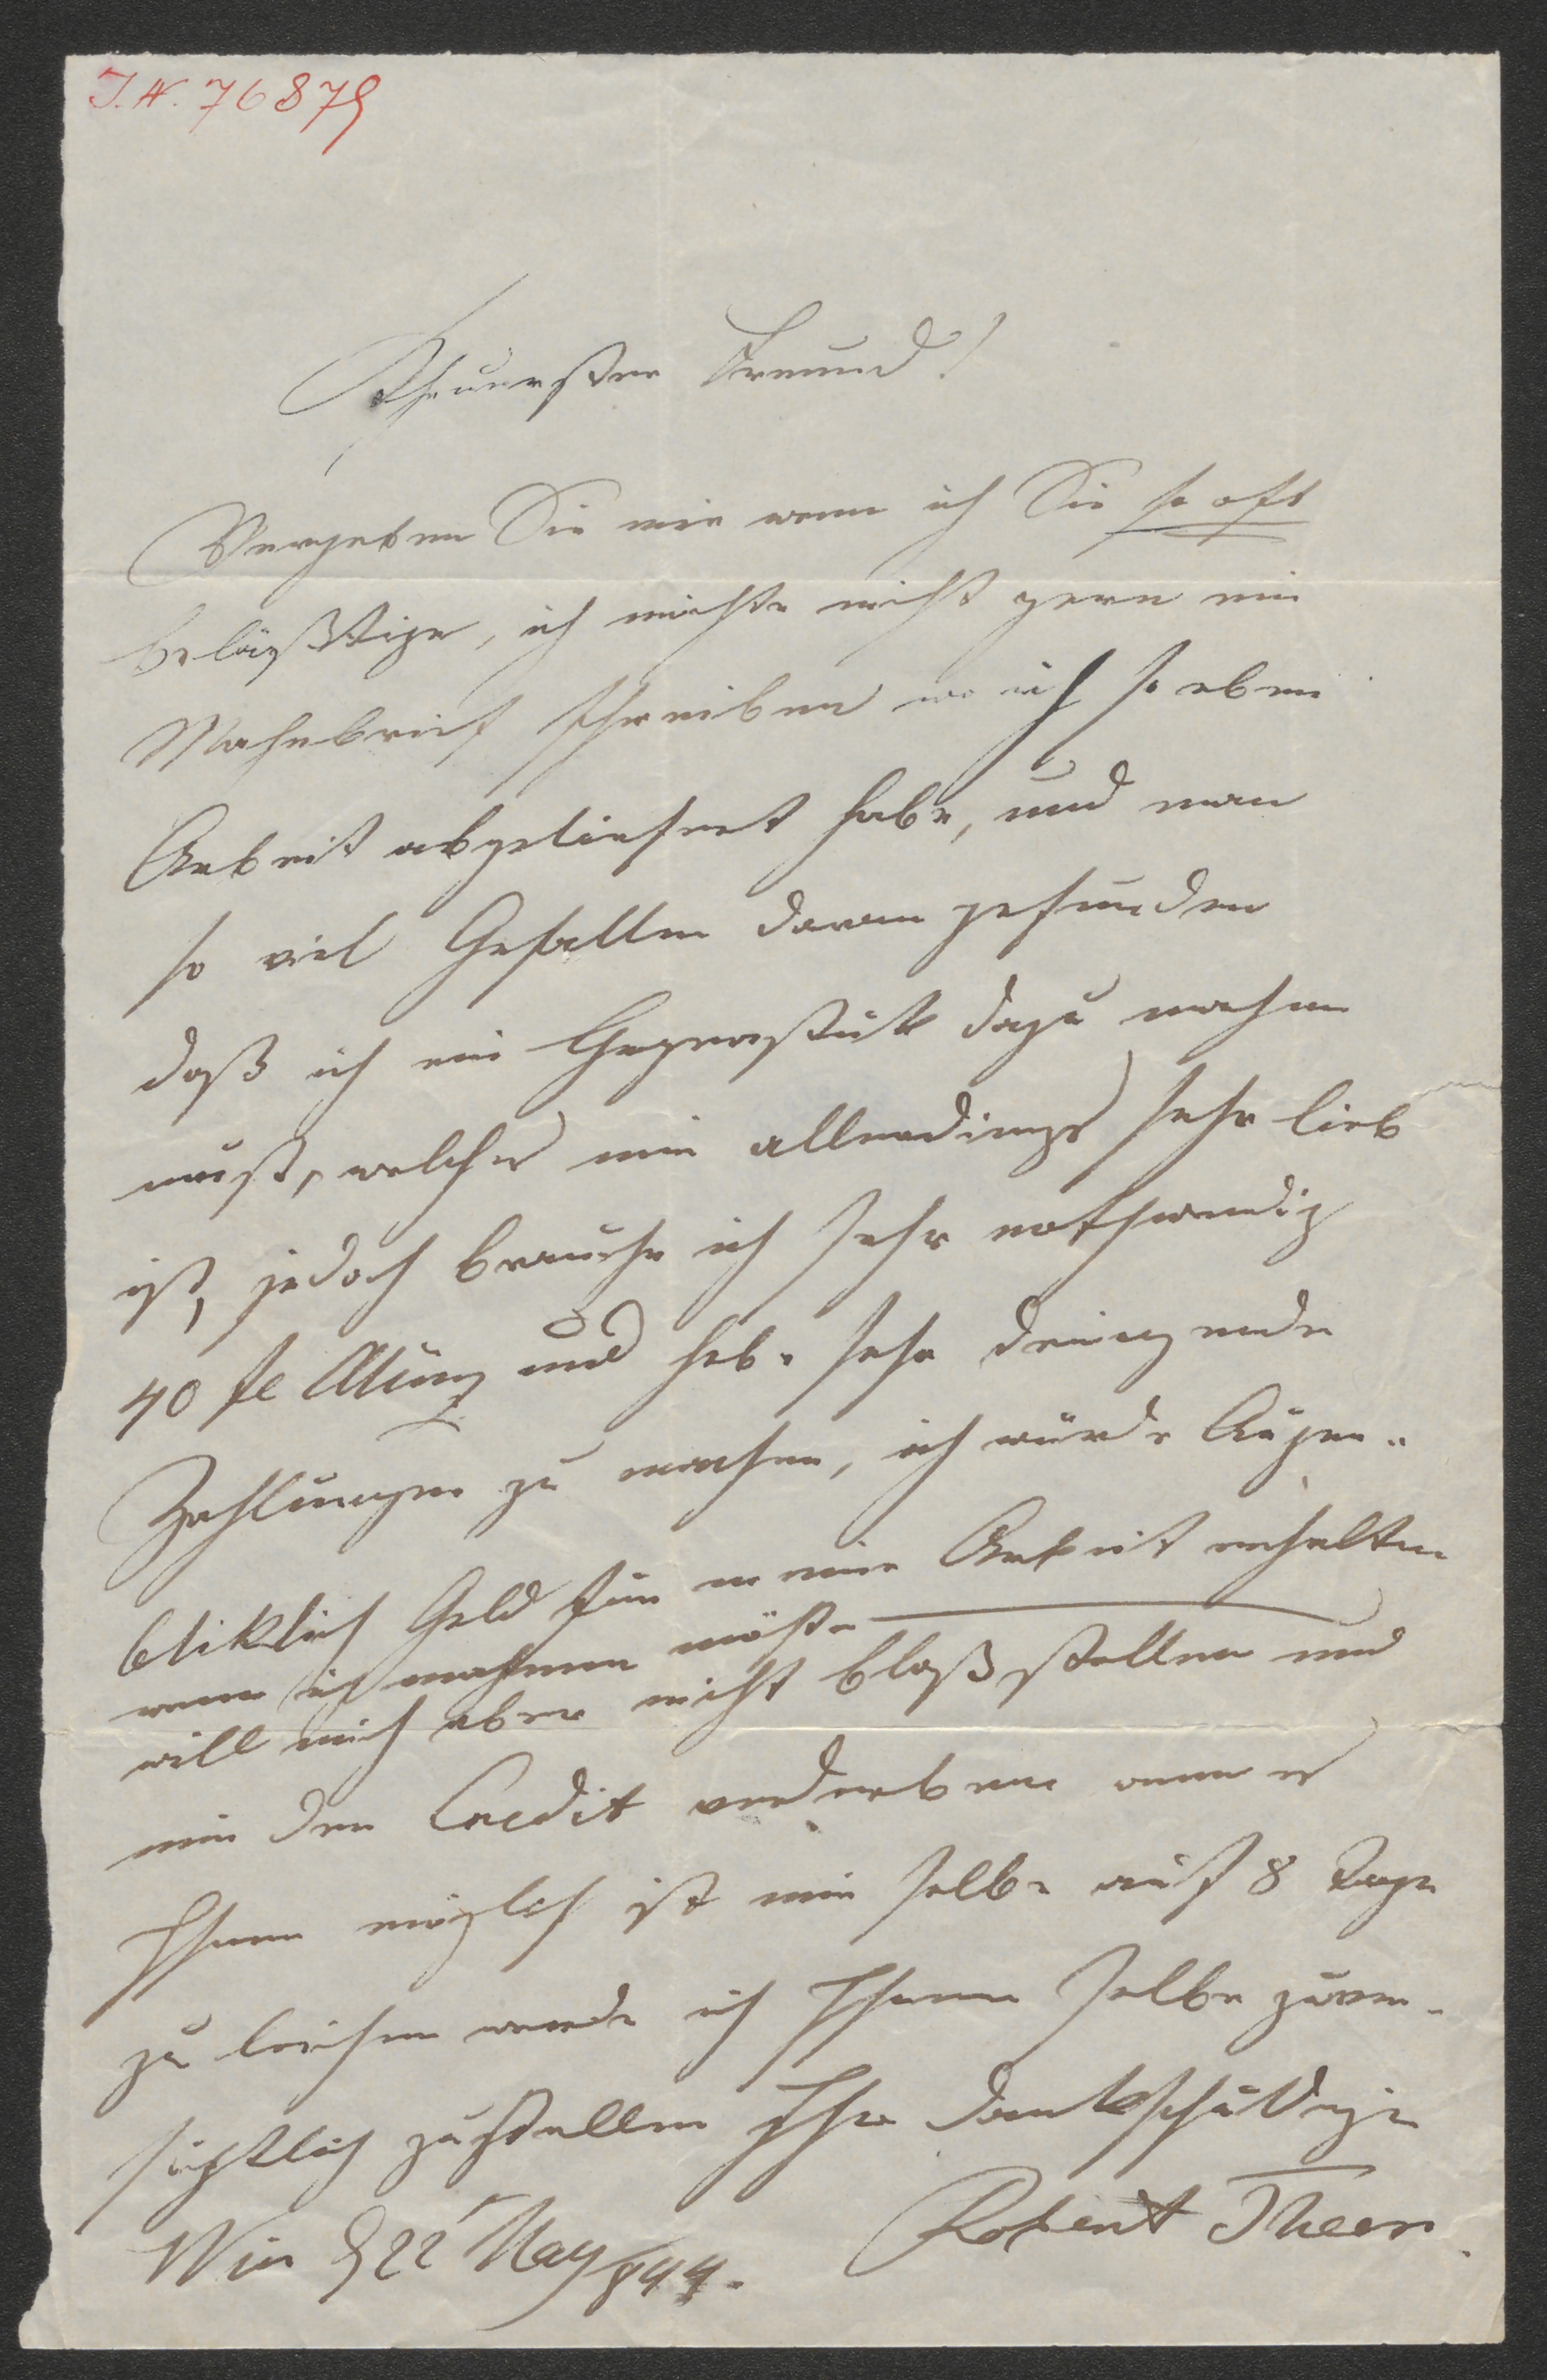 I.N. 76875
Theuerster Freund!
Vergeben Sie mir wenn ich Sie so oft
beläßtige, ich möchte nicht gern ein
Mahnbrief schreiben wo ich so eben
Arbeit abgeliefert habe, und man
so viel Gefallen daran gefunden
daß ich ein Gegenstück dazu machen
muß, welches mir allerdings sehr lieb
ist, jedoch brauche ich sehr nothwendig
40 fl Münz und habe sehr dringende
Zahlungen zu machen, ich würde Augen-
bliklich Geld für meine Arbeit erhalten
wenn ich mahnen möchte
will mich aber nicht bloß stellen und
mir den Credit verderben wenn es
Ihnen möglich ist mir selbe auf 8 Tage
zu leihen werde ich Ihnen selbe zuver-
sichtlich zustellen Ihr dankschuldiger
Robert Theer
Wien d 22 May 844.